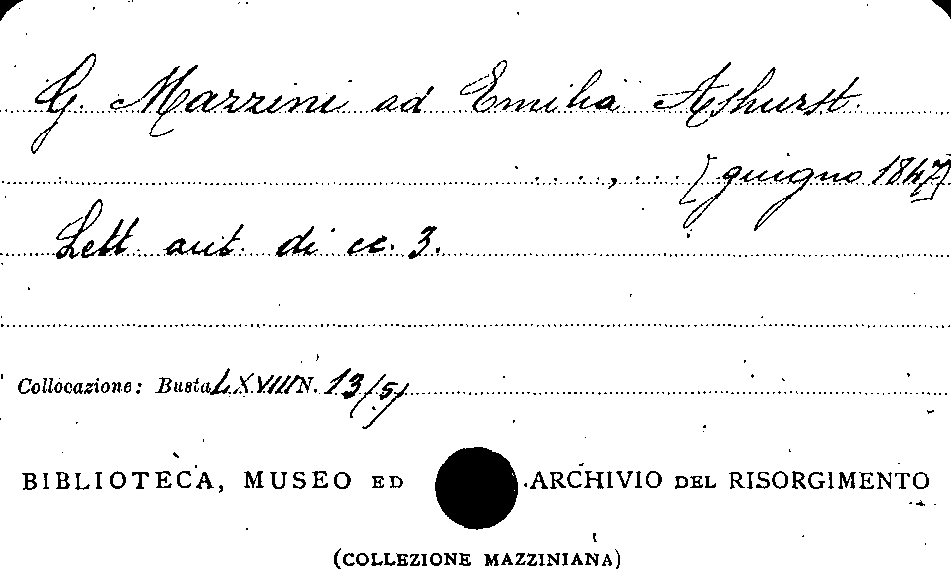 G. Mazzini ad Emilia Ashurst.
....,...[giugno 1847]
Lett. aut. di cc. 3.
Collocazione: Busta LXVIII N. 13/5/
BIBLIOTECA, MUSEO ED ARCHIVIO DEL RISORGIMENTO
(COLLEZIONE MAZZINIANA)